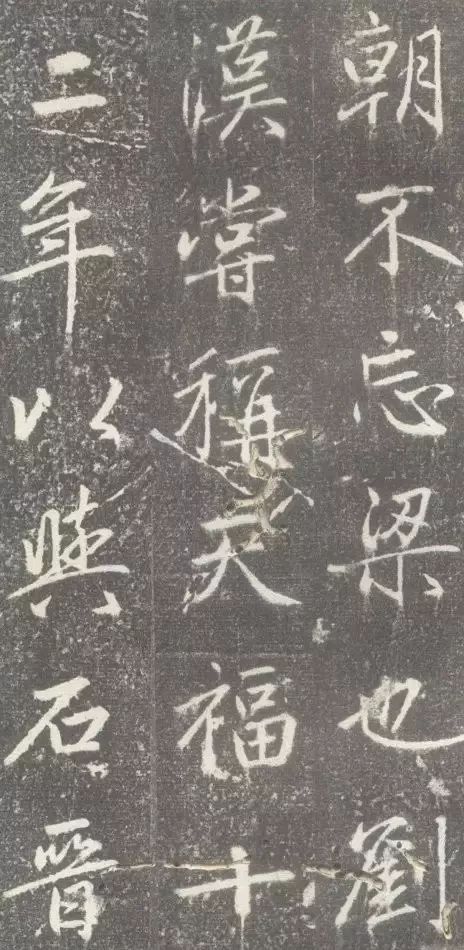 朝不忘梁也劉
漢嘗稱天福十
二年以興石晉